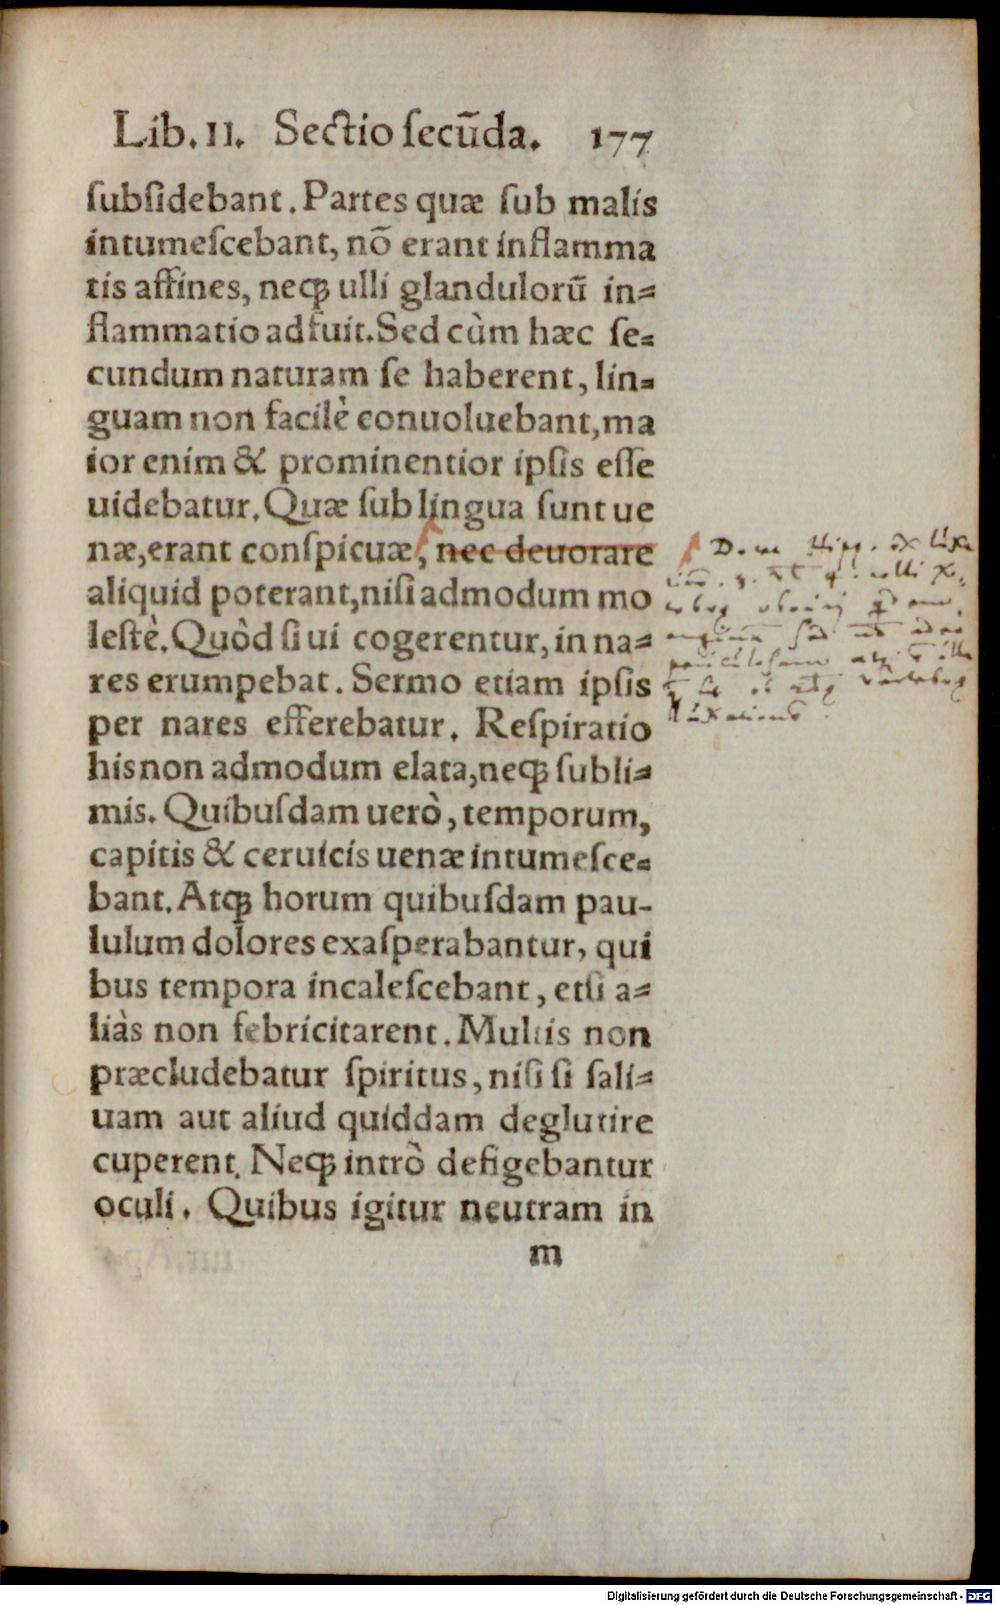 Lib. II. Sectio secūda. 177
subsidebant. Partes quæ sub malis
intumescebant, nō erant inflamma
tis affines, neqꝫ ulli glandulorū in=
flammatio adfuit. Sed cùm hæc se=
cundum naturam se haberent, lin=
guam non facilè conuoluebant, ma
ior enim & prominentior ipsis esse
uidebatur. Quæ sub lingua sunt ue
næ, erant conspicuæ, nec deuorare
aliquid poterant, nisi admodum mo
lestè. Quòd si ui cogerentur, in na=
res erumpebat. Sermo etiam ipsis
per nares efferebatur. Respiratio
his non admodum elata, neqꝫ subli=
mis. Quibusdam uerò, temporum,
capitis & ceruicis uenæ intumesce=
bant. Atqꝫ horum quibusdam pau-
lulum dolores exasperabantur, qui
bus tempora incalescebant, etsi a=
liàs non febricitarent. Multis non
præcludebatur spiritus, nisi si sali=
uam aut aliud quiddam deglutire
cuperent. Neqꝫ intrò defigebantur
oculi. Quibus igitur neutram in
m
Hipp. ex
Digitalisierung gefördert durch die Deutsche Forschungsgemeinschaft - DFG